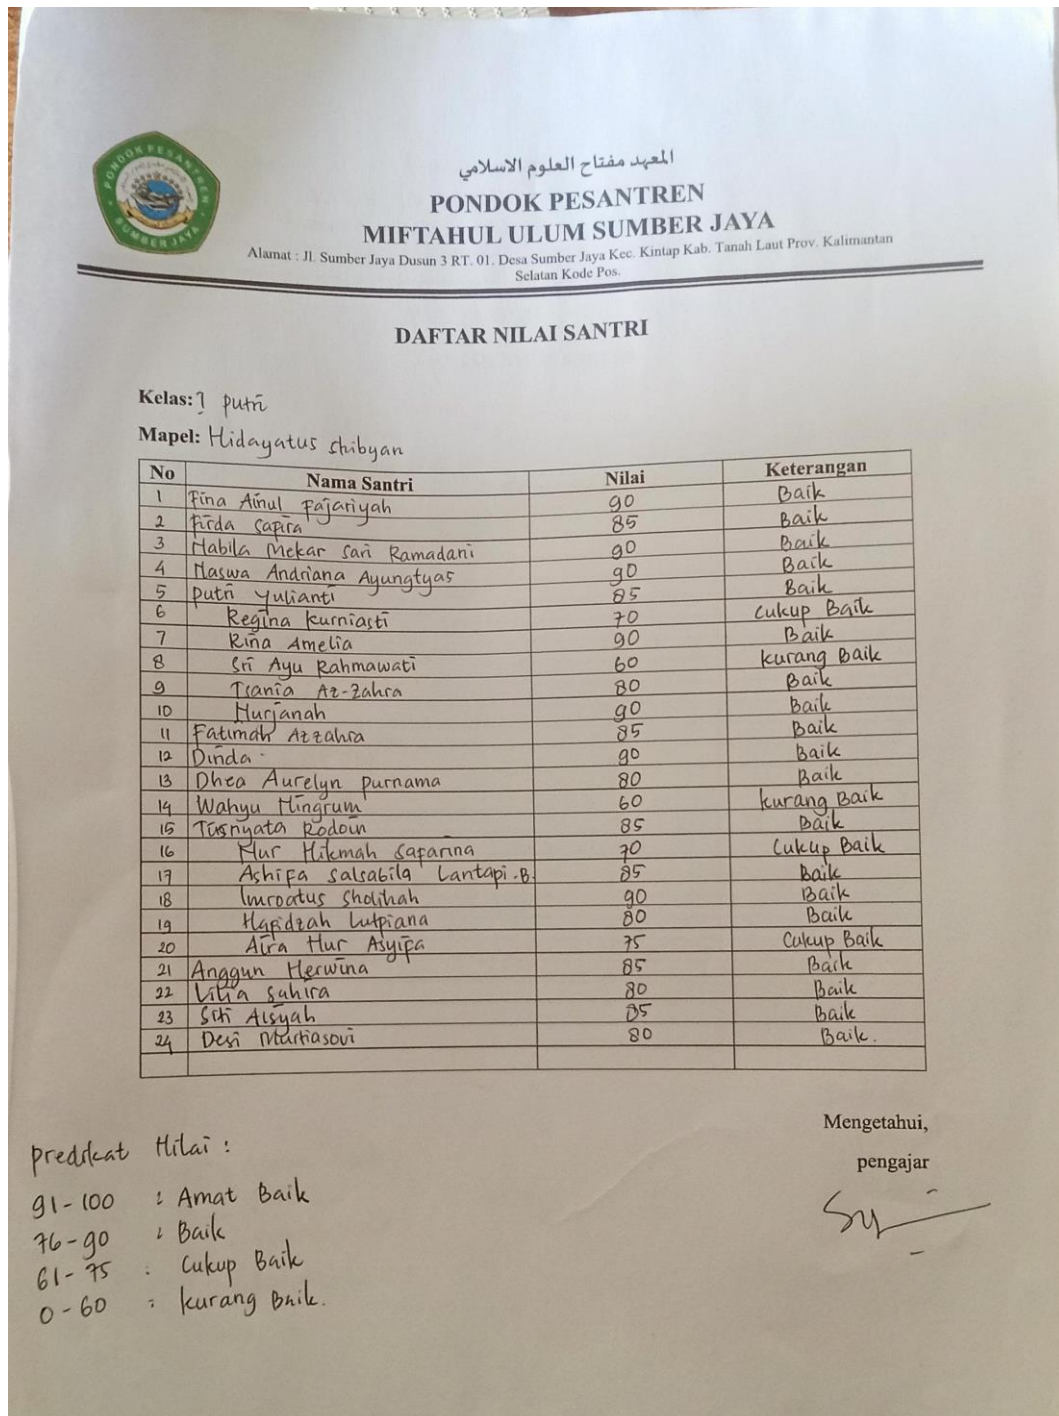 PONDOK PESANTREN
SUMBER JAYA
المعهد مفتاح العلوم الاسلامي
PONDOK PESANTREN
MIFTAHUL ULUM SUMBER JAYA
Alamat : Jl. Sumber Jaya Dusun 3 RT. 01. Desa Sumber Jaya Kec. Kintap Kab. Tanah Laut Prov. Kalimantan
Selatan Kode Pos.
DAFTAR NILAI SANTRI
Kelas: putri
Mapel: Hidayatus shibyan
No Nama Santri Nilai Keterangan
1 Fina Ainul Fajariyah 90 Baik
2 Firda Sapira 85 Baik
3 Nabila Mekar Sari Ramadani 90 Baik
4 Naswa Andriana Ayungtyas 90 Baik
5 Putri Yulianti 85 Baik
6 Regina Kurniasti 70 Cukup Baik
7 Rina Amelia 90 Baik
8 Sri Ayu Rahmawati 60 Kurang Baik
9 Tsania Az-Zahra 80 Baik
10 Nurjanah 90 Baik
11 Fatimah Azzahra 85 Baik
12 Dinda 90 Baik
13 Dhea Aurelyn Purnama 80 Baik
14 Wahyu Ningrum 60 Kurang Baik
15 85 Baik
16 Nur Hikmah Safarina 70 Cukup Baik
17 Ashifa Salsabila Lantapi.B. 85 Baik
18 Imroatus Sholihah 90 Baik
19 Hafidzah Lutpiana 80 Baik
20 Aira Nur Asyifa 75 Cukup Baik
21 Anggun Herwina 85 Baik
22 Lilia Sahira 80 Baik
23 Siti Aisyah 85 Baik
24 Desi Martiasovi 80 Baik.
Mengetahui,
pengajar
Predikat Nilai :
91-100 : Amat Baik
76-90 : Baik
61-75 : Cukup Baik
0-60 : Kurang Baik.